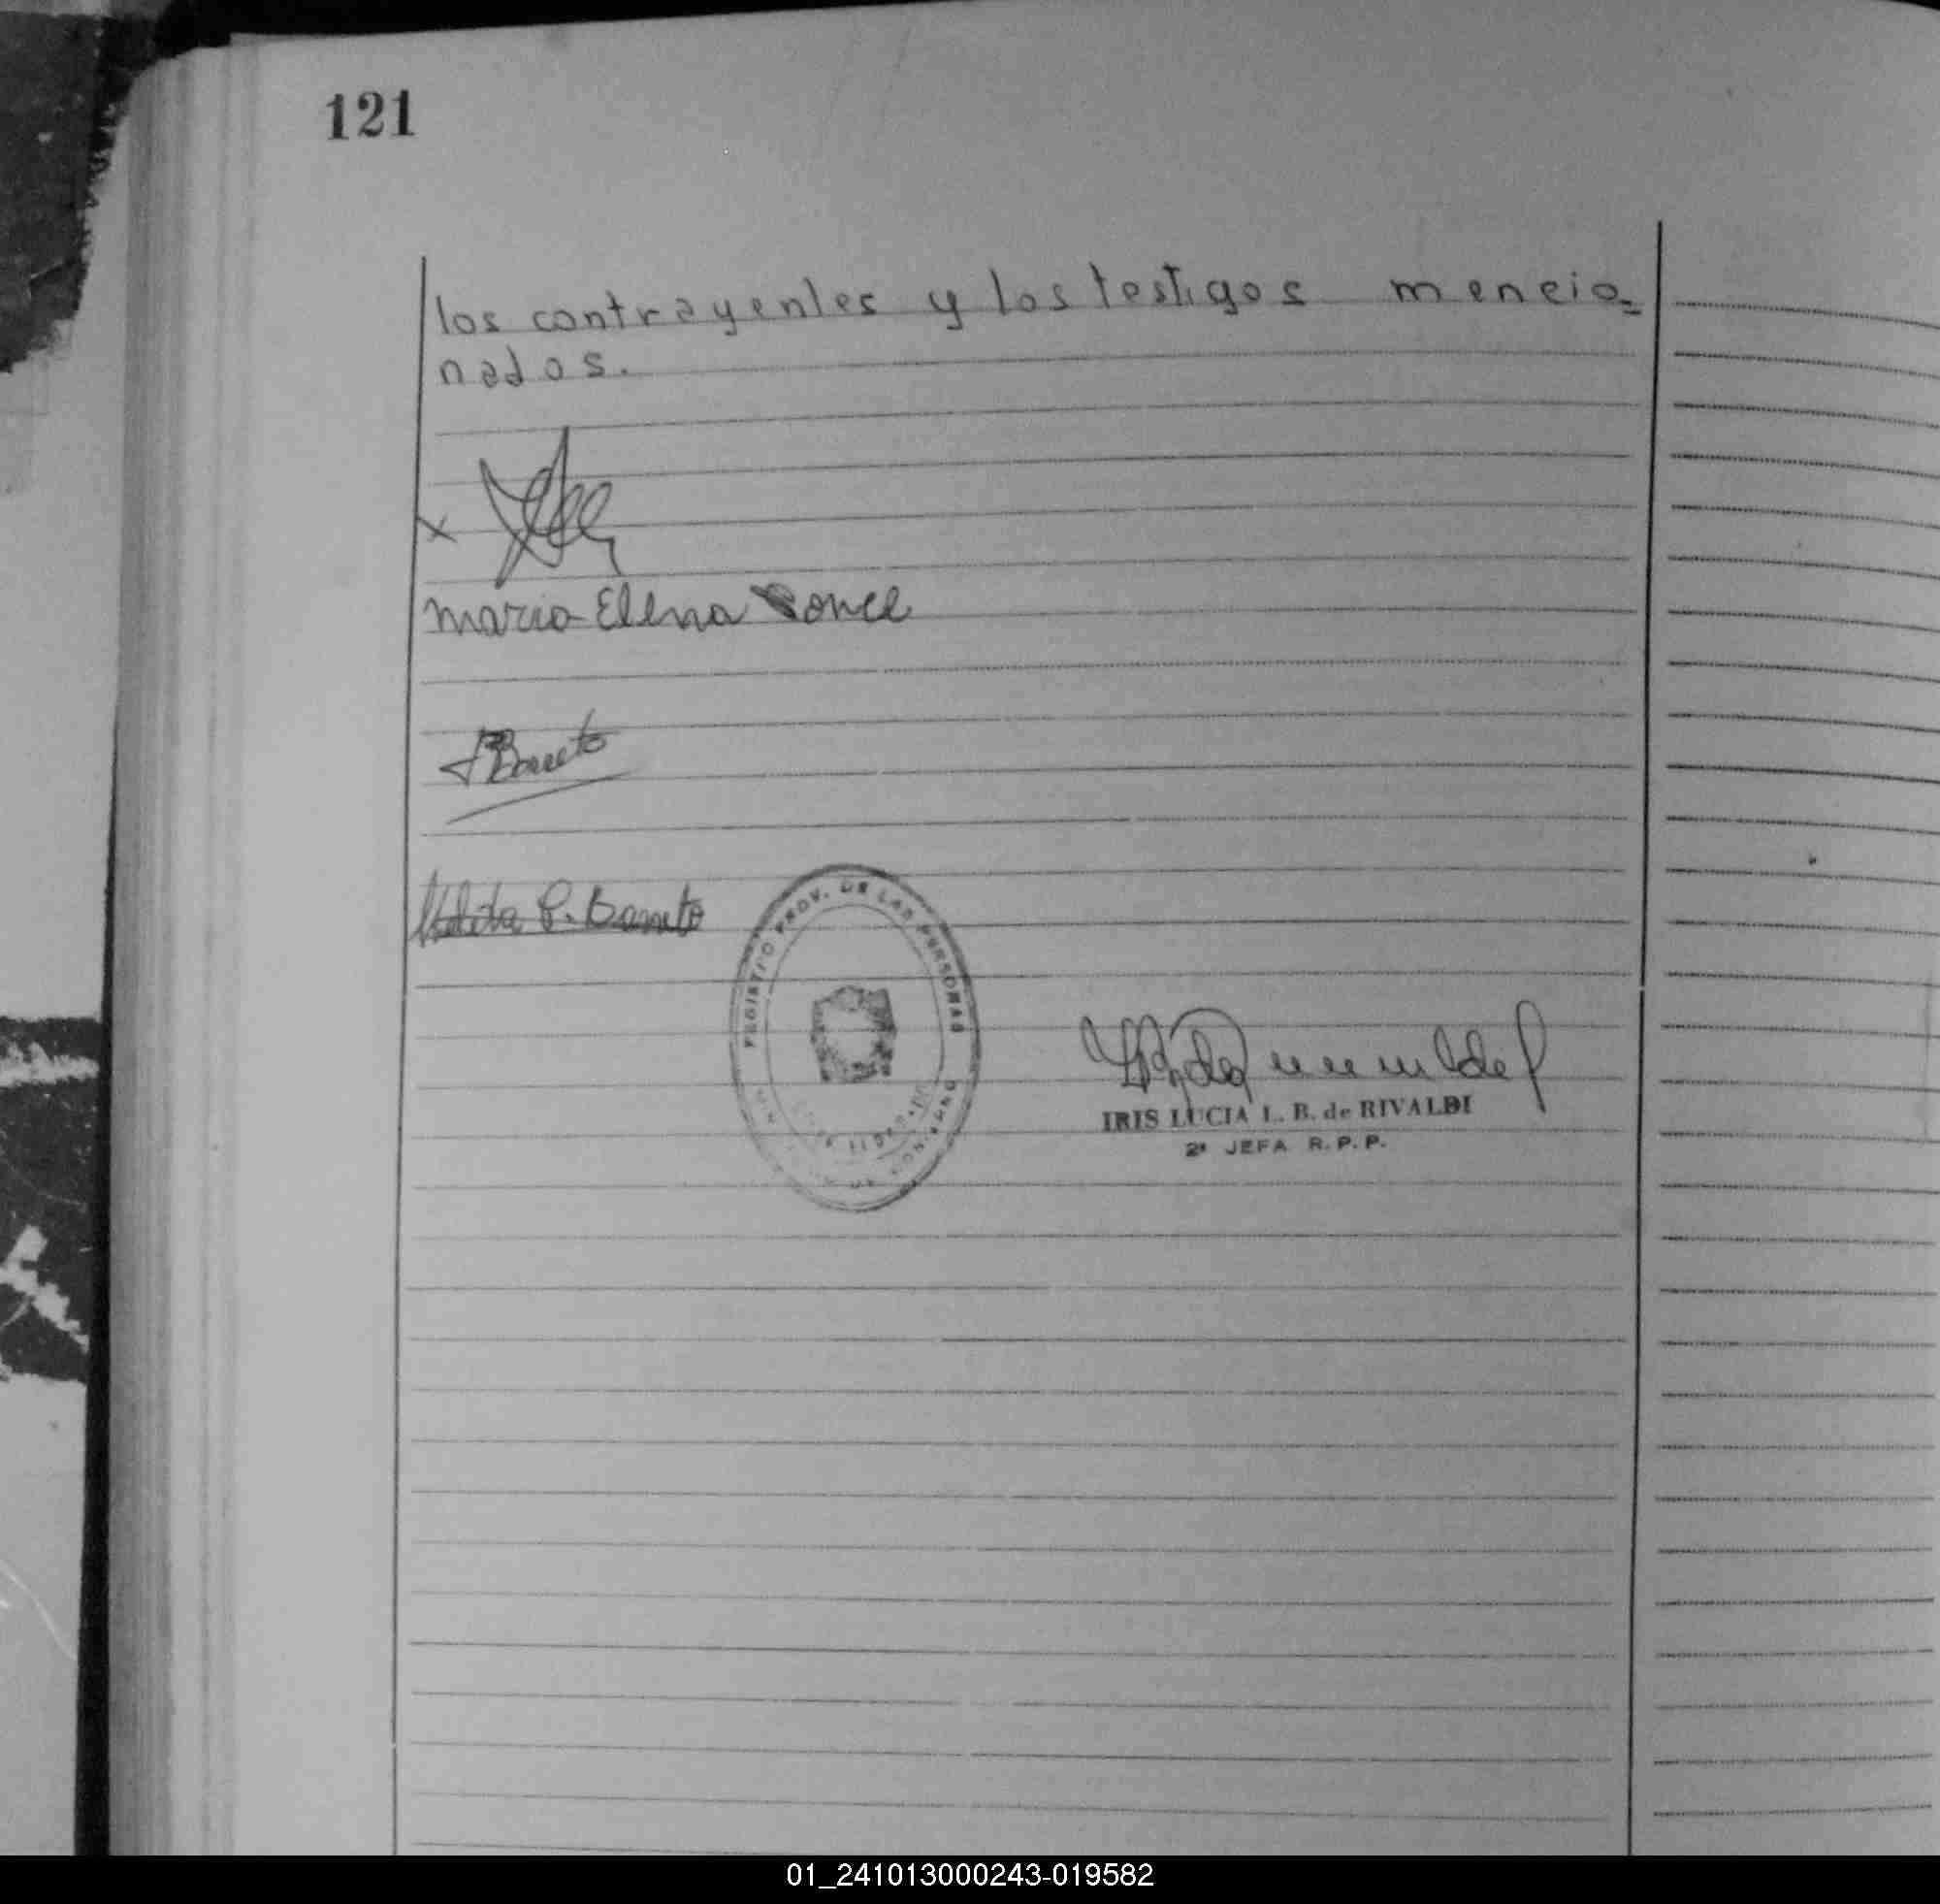 121
los contrayentes y los testigos mencio=
nados.
x
Maria Elena Ponce
Barreto
P. Barreto
REGISTRO PROV. DE LAS PERSONAS
IRIS LUCIA L. B. de RIVALDI
2ª JEFA R.P.P.
01_241013000243-019582